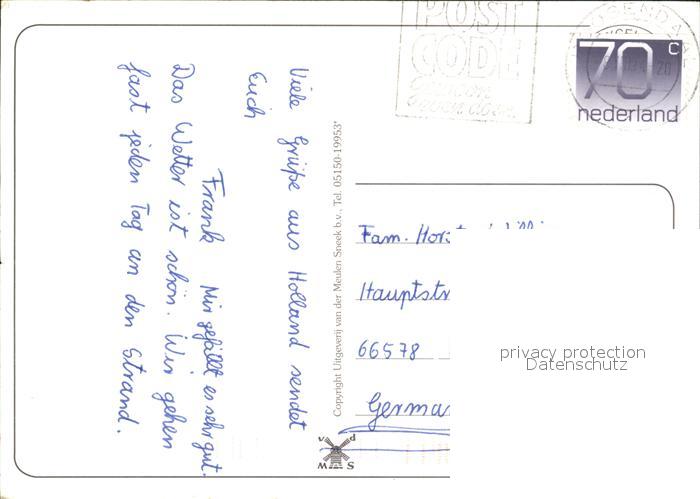 Viele Grüße aus Holland sendet
Euch
Frank Mir gefällt es sehr gut.
Das Wetter ist schön. Wir gehen
fast jeden Tag an den Strand.
Copyright Uitgeverij van der Meulen Sneek b.v., Tel. 05150-19953*
v d
M S
POST
CODE
70 c
nederland
Fam.
Hauptstr
66578
German
privacy protection
Datenschutz